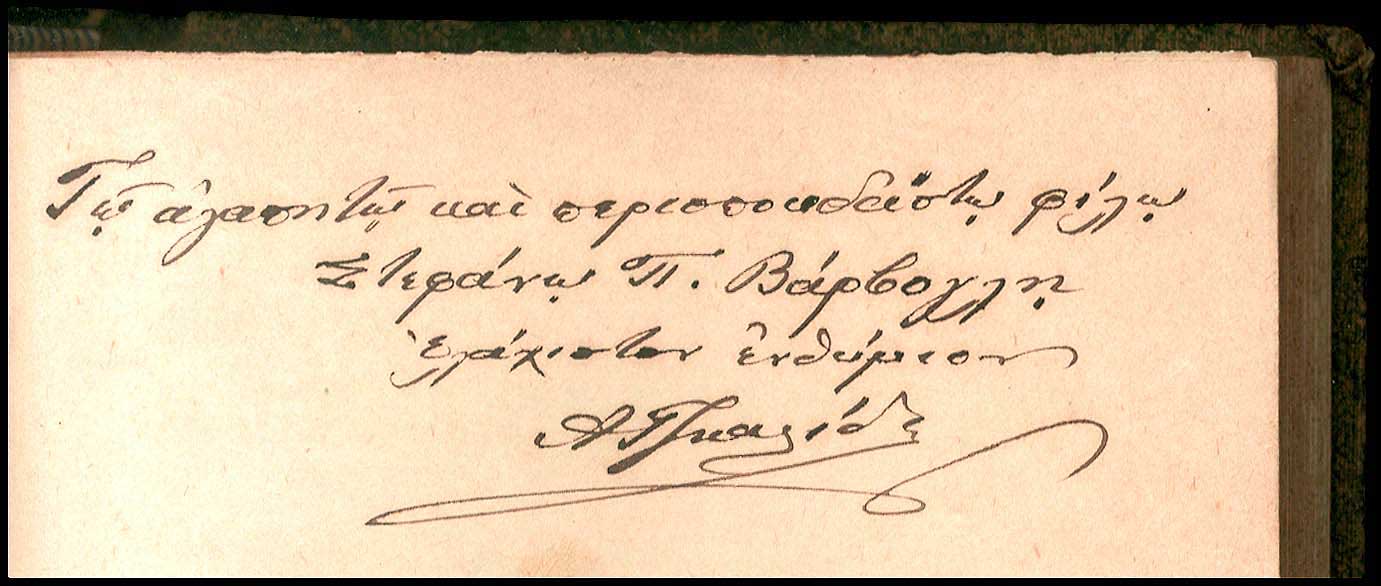 Τῷ ἀγαπητῷ καὶ περισπουδάστῳ φίλῳ
Στεφάνῳ Π. Βάρβογλῃ
ἐλάχιστον ἐνθύμιον